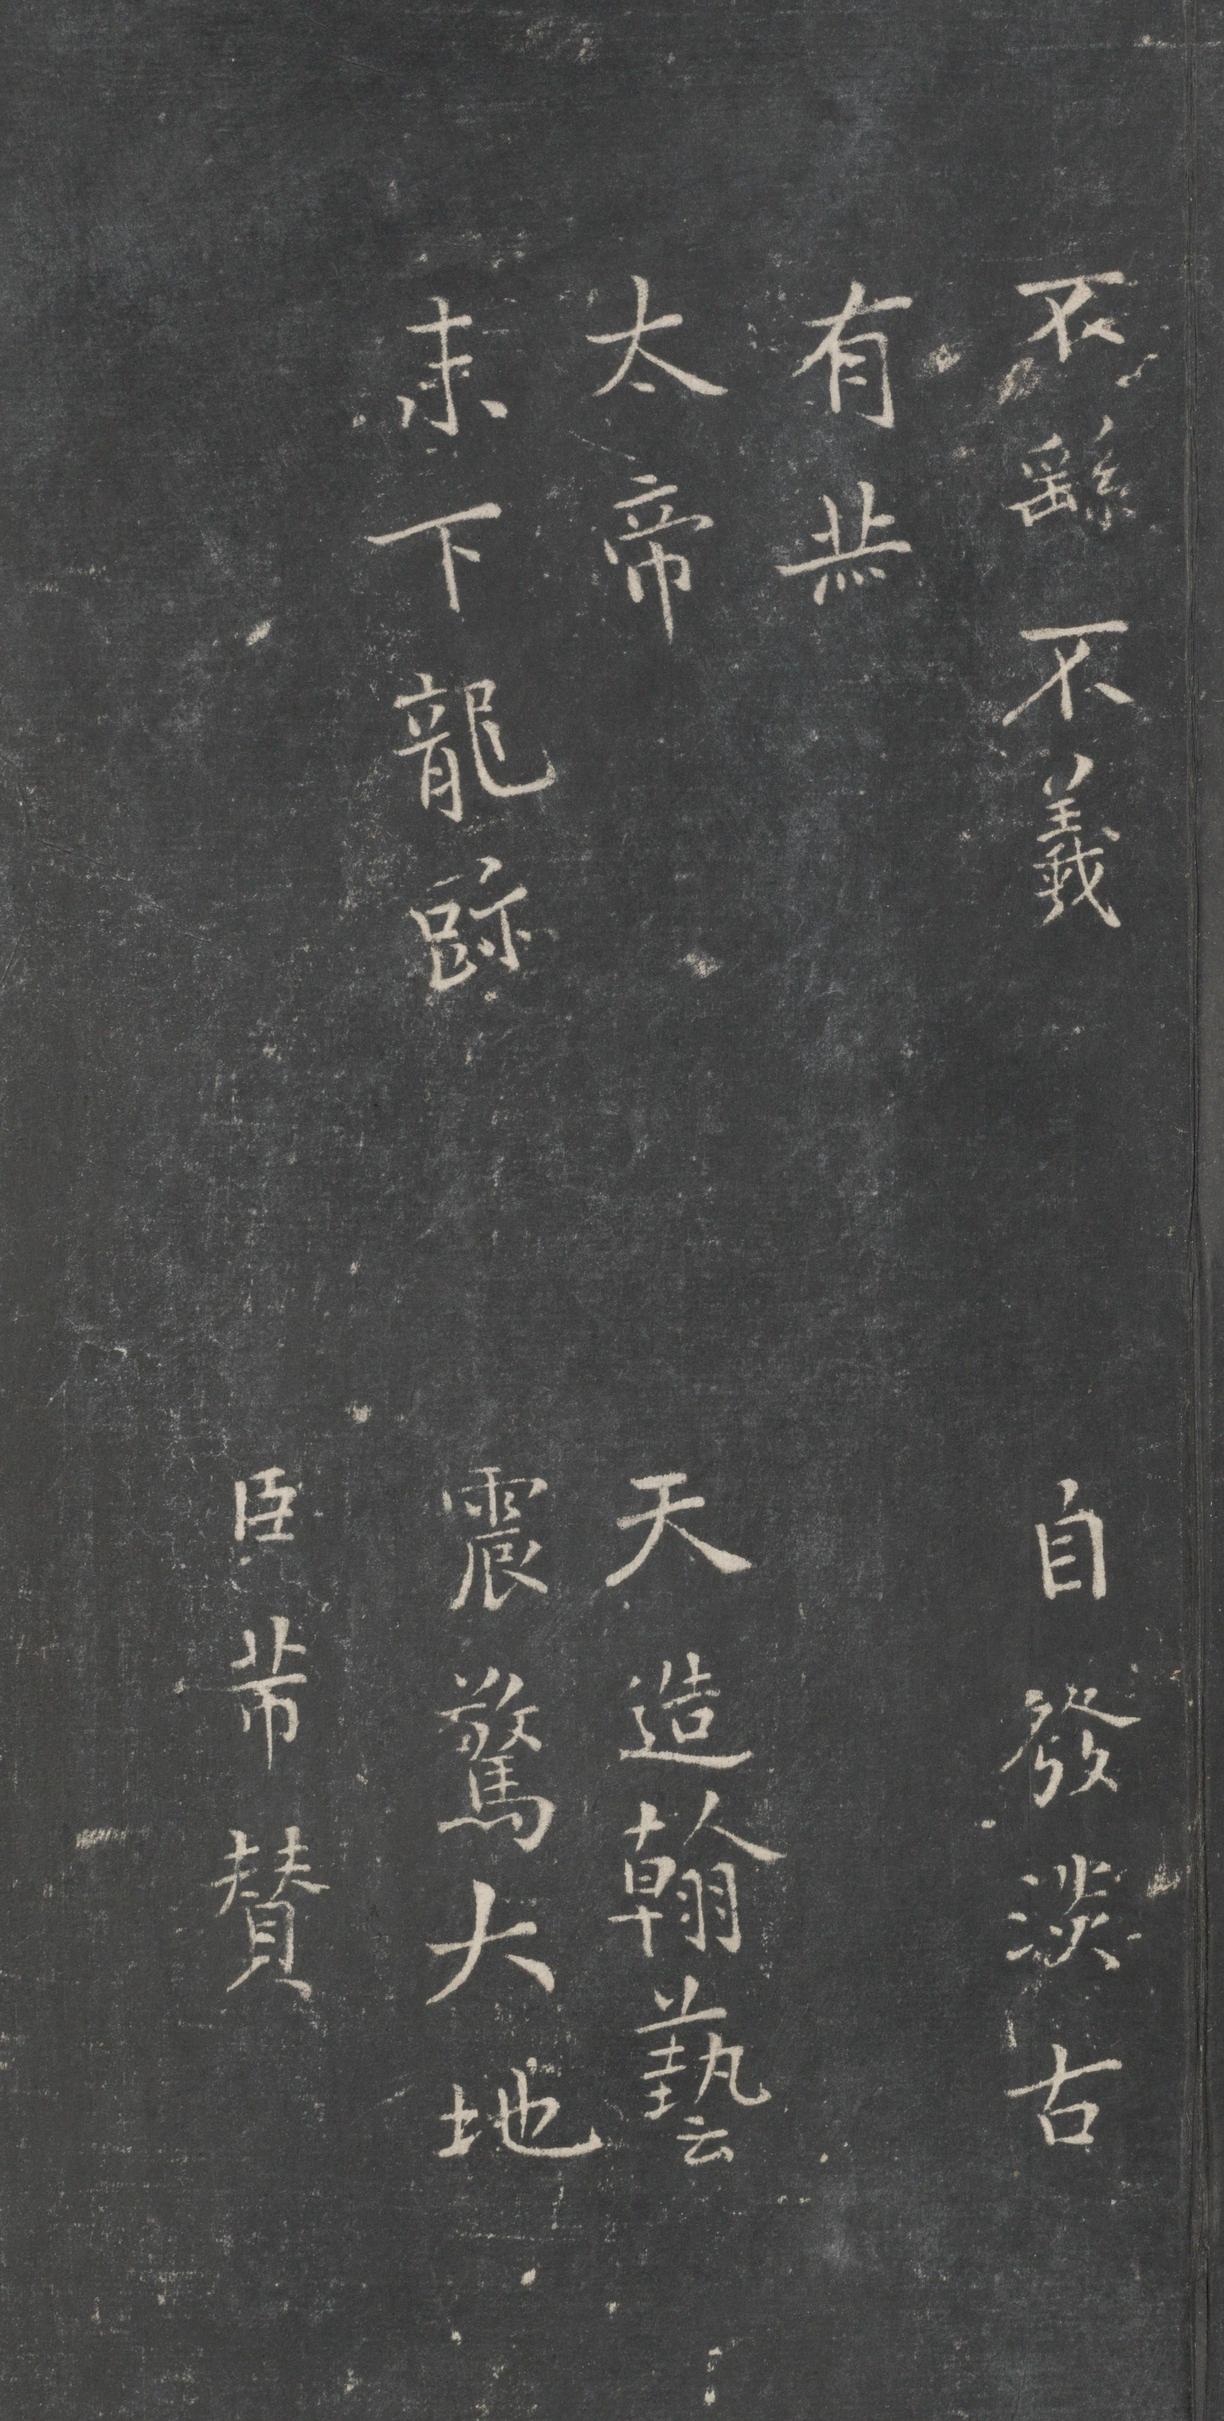 不繇不羲 自發淡古
有
太帝 天造翰藝
下龍跡 震驚大地
臣芾贊